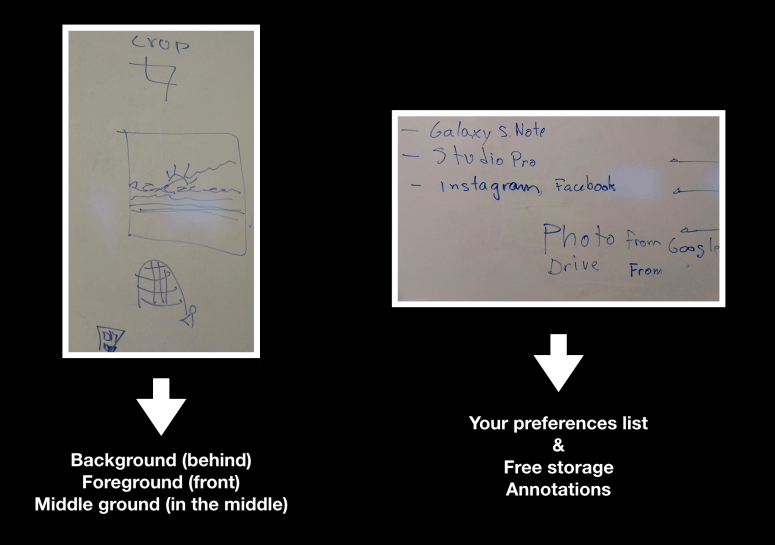 crop
- Galaxy S Note
- Studio Pro
- Instagram, Facebook
Photo from Google
Drive From
Background (behind)
Foreground (front)
Middle ground (in the middle)
Your preferences list
&
Free storage
Annotations